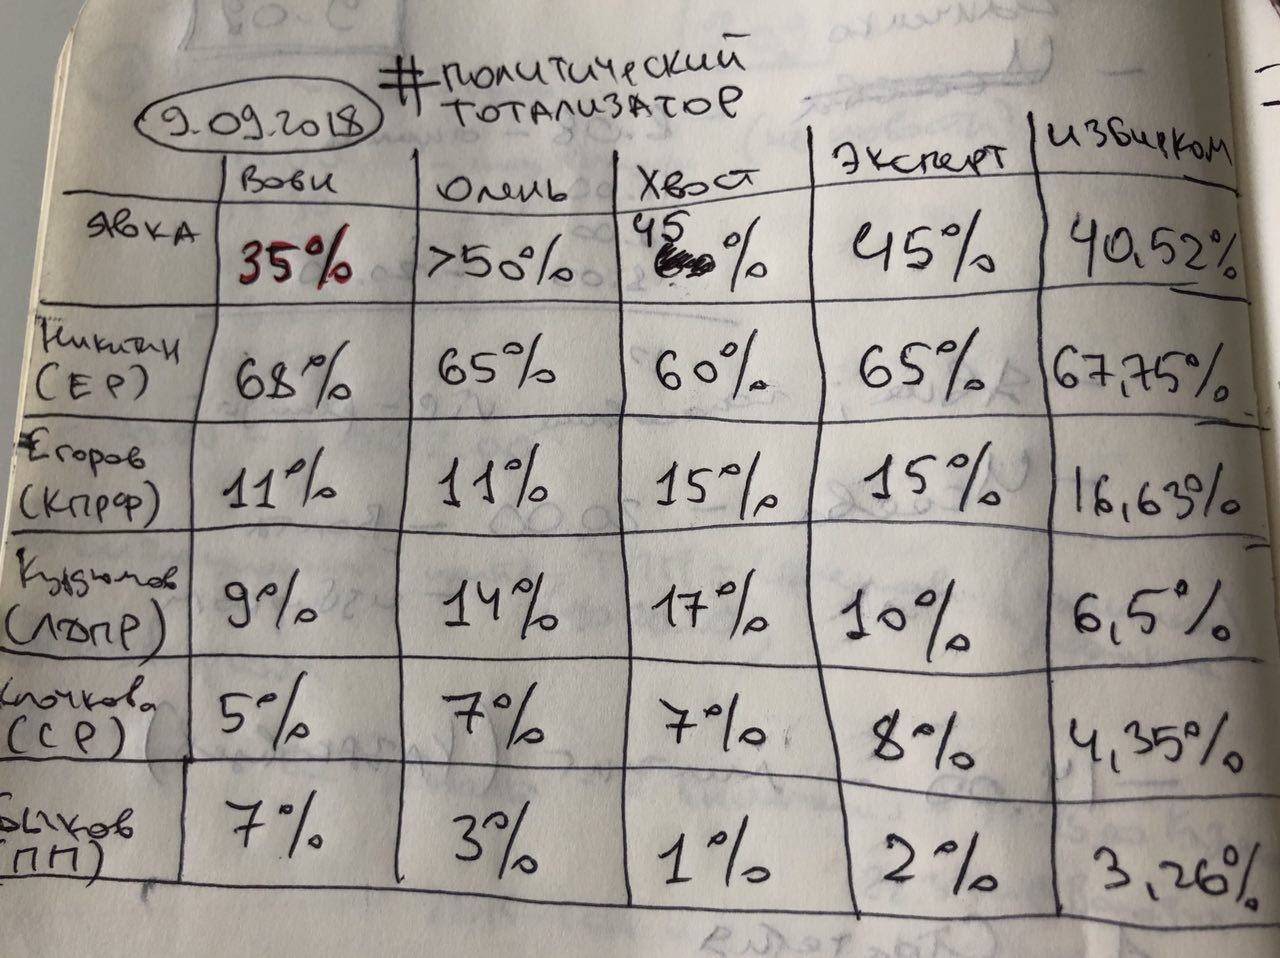 #политический
тотализатор
9.09.2018
Вови Олень Хвост Эксперт избирком
явка 35% >50% 45% 45% 40,52%
Никитин 68% 65% 60% 65% 67,75%
(ЕР)
Егоров 11% 11% 15% 15% 16,63%
(КПРФ)
Кудзюмов 9% 14% 17% 10% 6,5%
(ЛДПР)
Клочкова 5% 7% 7% 8% 4,35%
(СР)
Быков 7% 3% 1% 2% 3,26%
(ПП)